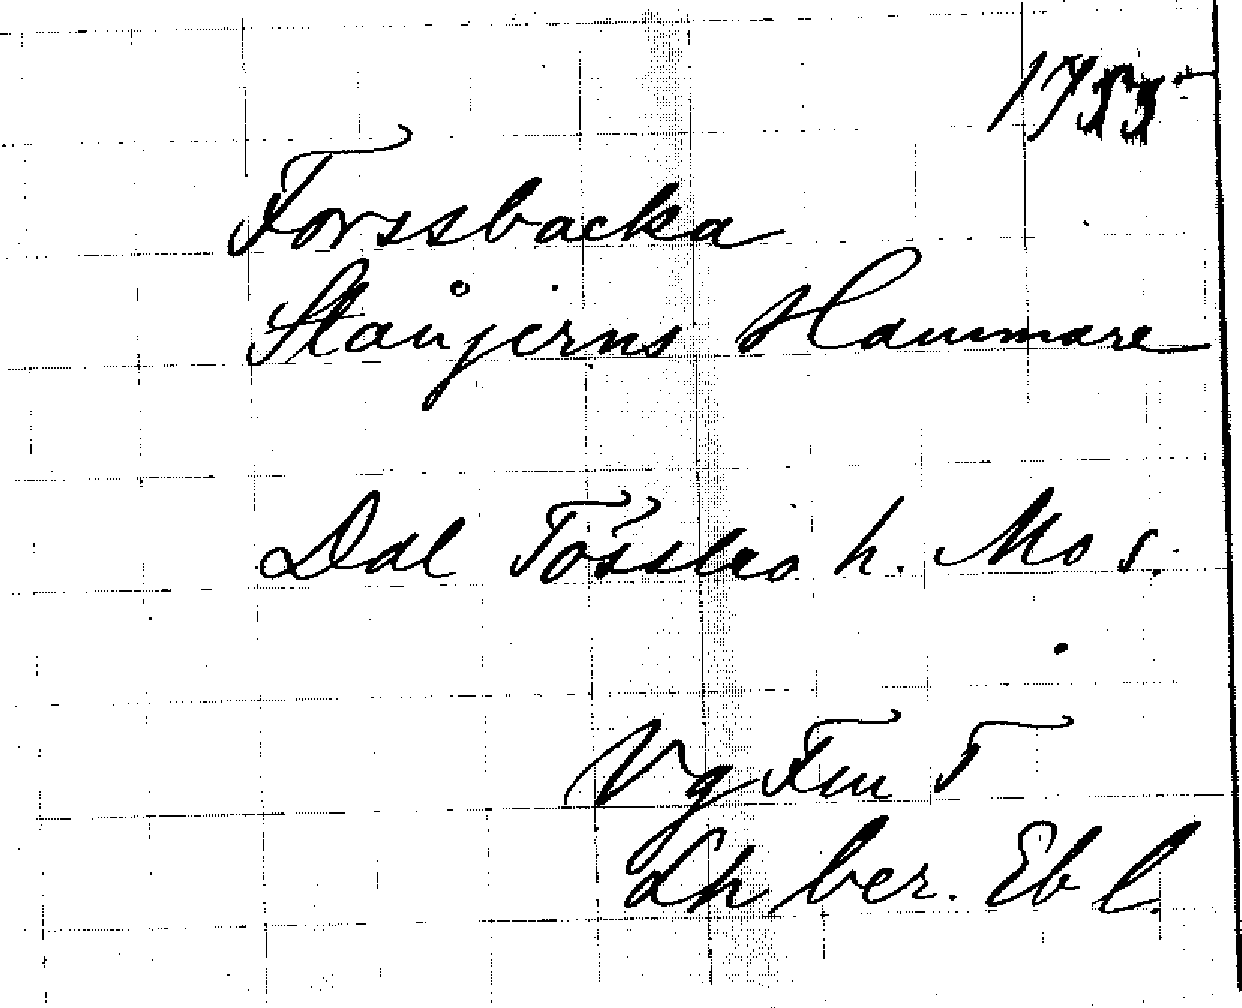 1755
Forssbacka
Stångjerns Hammare
Dal Tössbo h. Mo s.
Vg Fm T
Lh ber. Eb l.